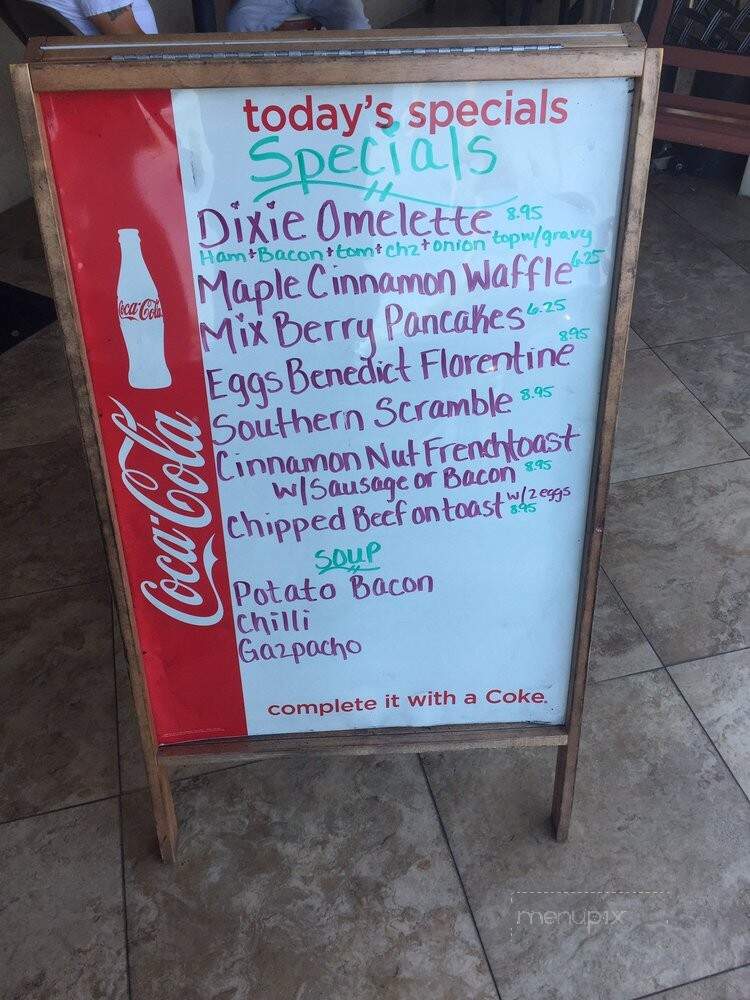 today's specials
Specials
Dixie Omelette 8.95
Ham+Bacon+tom+chz+onion topw/gravy
Maple Cinnamon Waffle 6.25
Mix Berry Pancakes 6.25
Eggs Benedict Florentine 8.95
Southern Scramble 8.95
Cinnamon Nut Frenchtoast
w/Sausage or Bacon 8.95
Chipped Beef on toast w/2 eggs 8.95
Soup
Potato Bacon
Chilli
Gazpacho
complete it with a Coke.
Coca-Cola
Coca-Cola
menupix